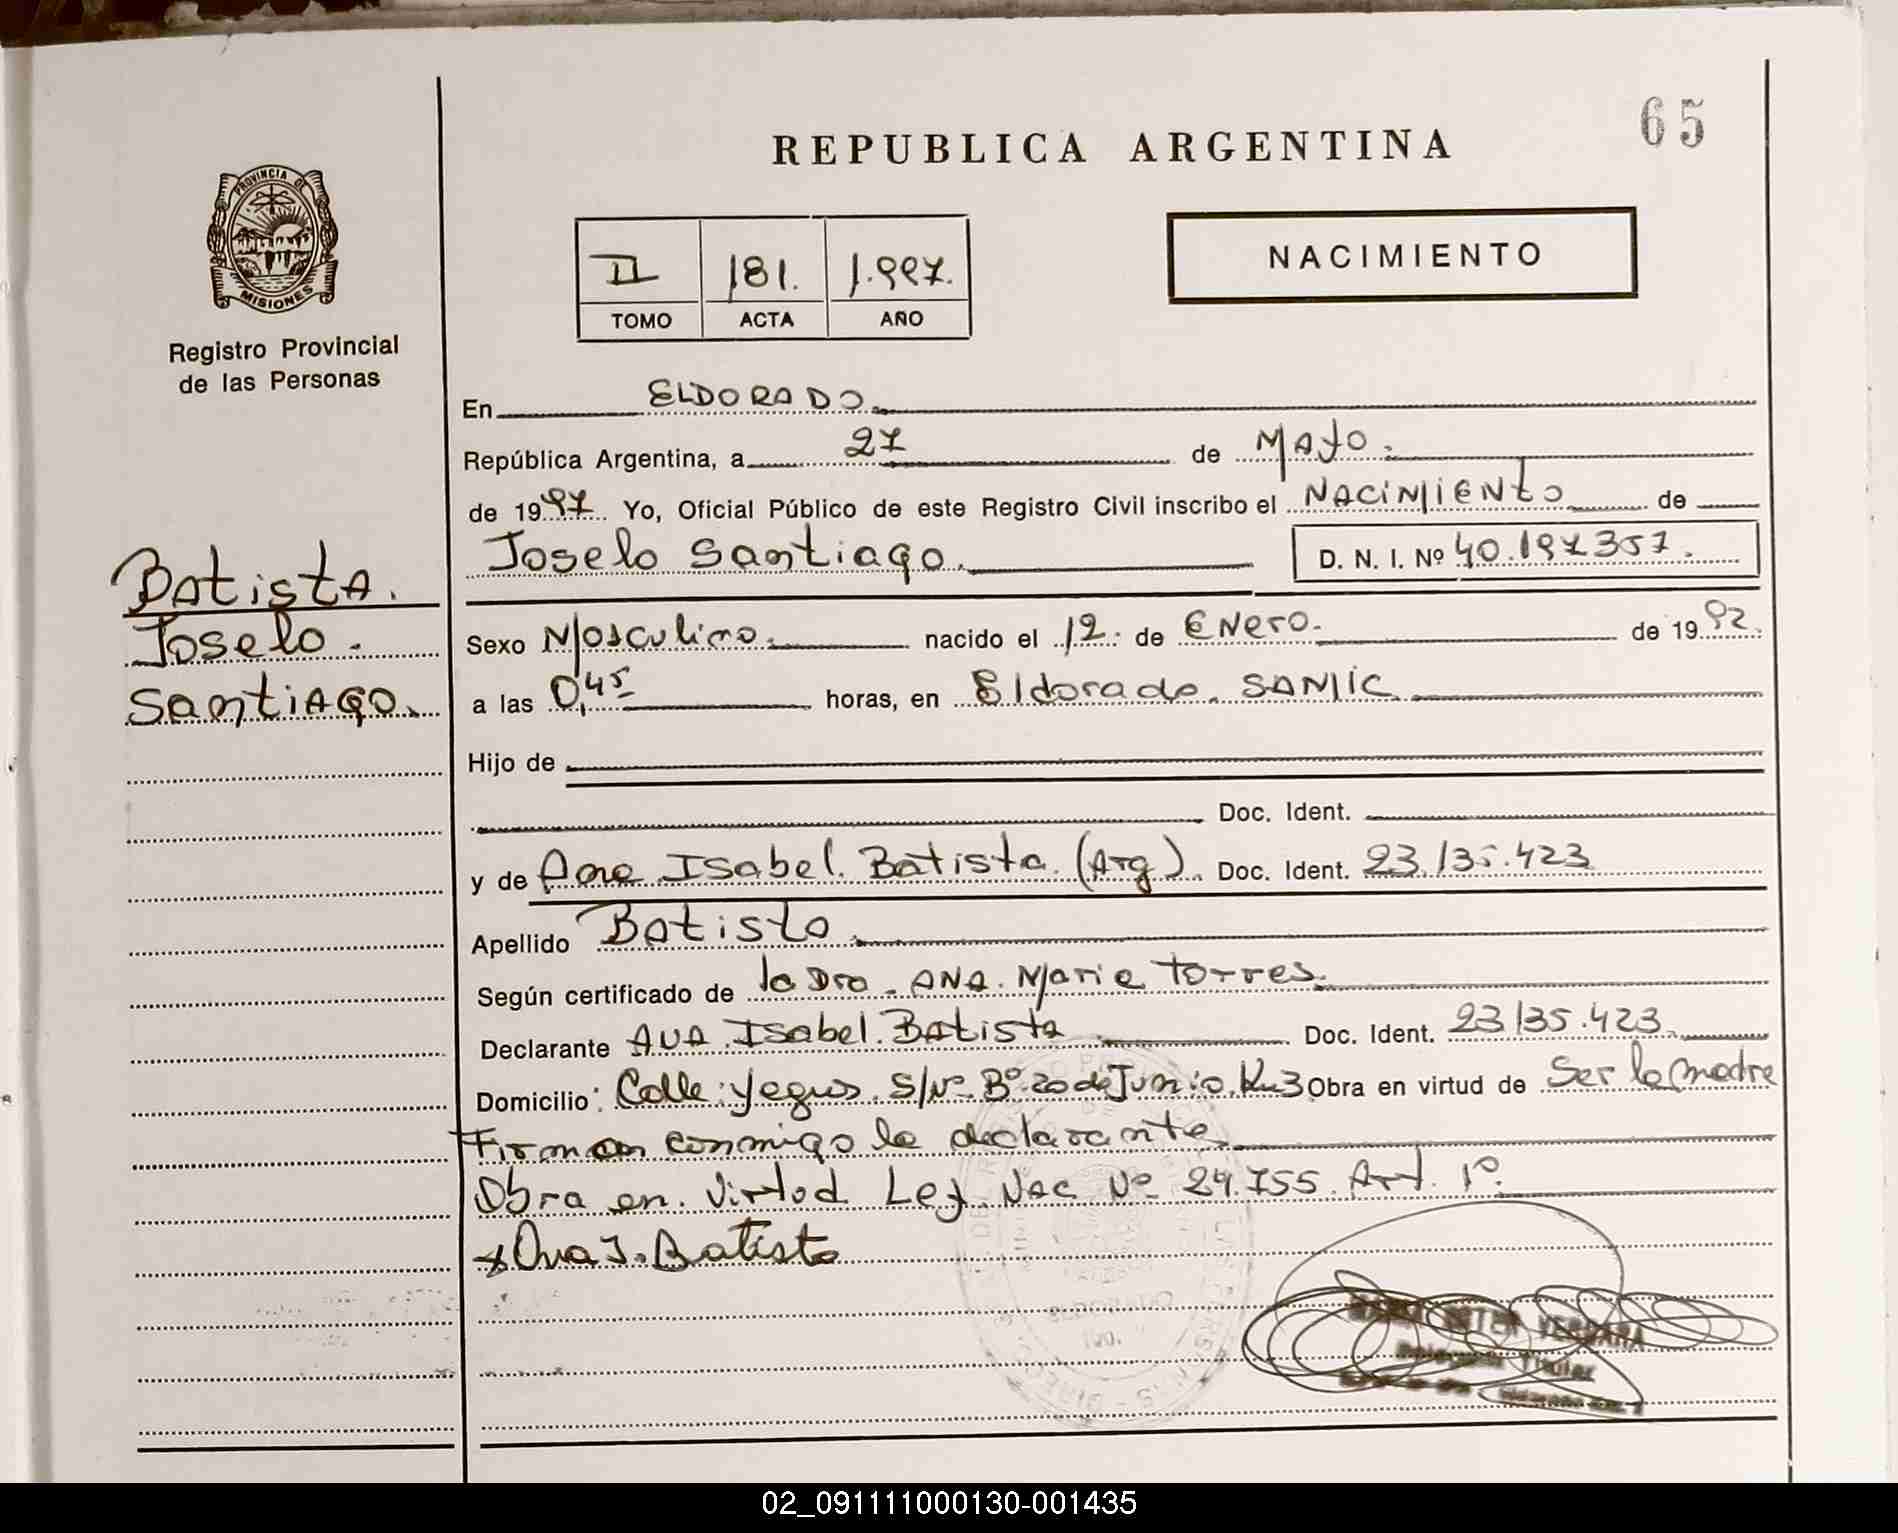 65
REPUBLICA ARGENTINA
PROVINCIA DE
MISIONES
Registro Provincial
de las Personas
II 181. 1.997.
TOMO ACTA AÑO
NACIMIENTO
En ELDORADO
República Argentina, a 27 de MAYO.
de 1997 Yo, Oficial Público de este Registro Civil inscribo el NACIMIENTO de
Joselo Santiago. D. N. I. Nº 40.197357.
Batista.
Joselo.
Santiago.
Sexo Masculino. nacido el 12. de Enero. de 1992.
a las 0,45 horas, en Eldorado. SAMIC
Hijo de
Doc. Ident.
y de Ana Isabel. Batista. (Arg). Doc. Ident. 23.135.423
Apellido Batista
Según certificado de la Dra. ANA. Maria Torres.
Declarante ANA. Isabel. Batista Doc. Ident. 23135.423.
Domicilio: Calle: S/Nº. Bº. 20 de Junio. Km3 Obra en virtud de Ser la madre
Firman conmigo la declarante
Obra en. Virtud Ley. Nac Nº 24.755. Art. 1º.
x Ana I. Batista
VERGARA
Titular
02_091111000130-001435